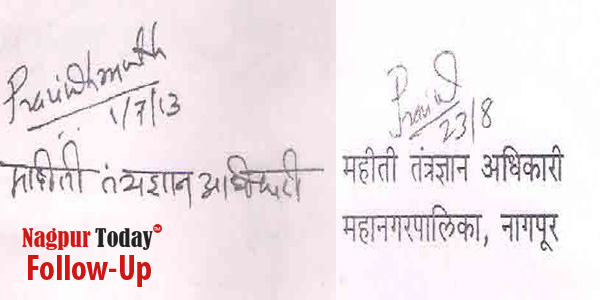 1/7/13
माहीती तंत्रज्ञान अधिकारी
Nagpur Today™
Follow-Up
23/8
महीती तंत्रज्ञान अधिकारी
महानगरपालिका, नागपूर